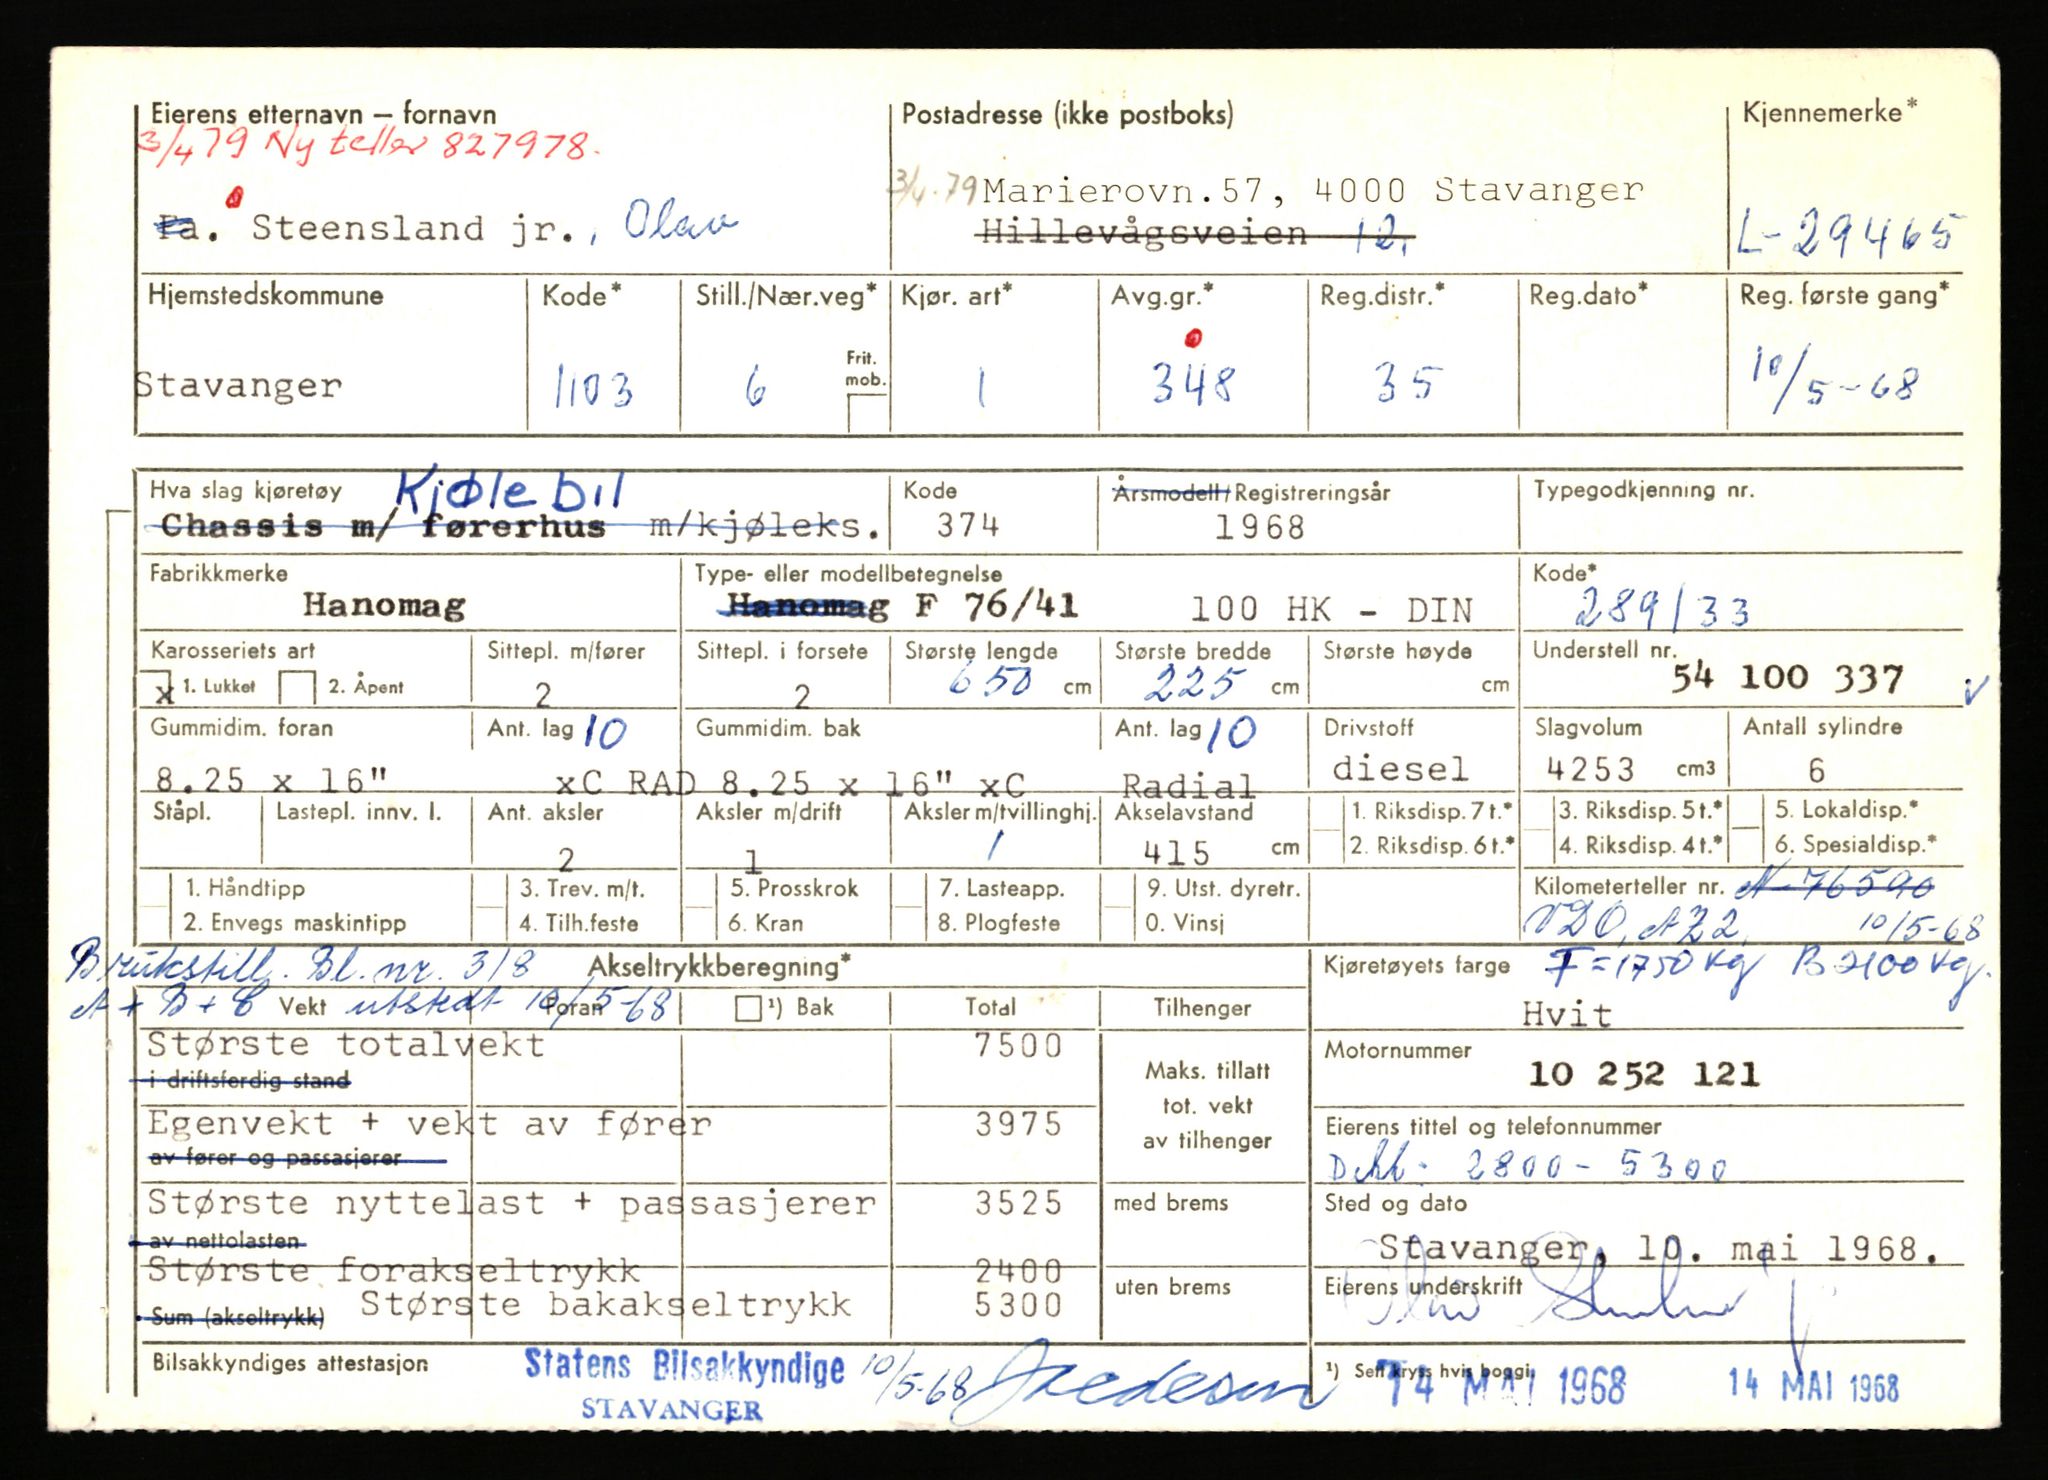 Eierens etternavn – fornavn
Postadresse (ikke postboks)
Kjennemerke*
3/4 79 Ny teller 827978.
3/4.79 Marierovn.57, 4000 Stavanger
Fa. Steensland jr., Olav
Hillevågsveien 12,
L-29465
Hjemstedskommune Kode* Still./Nær.veg* Kjør. art* Avg.gr.* Reg.distr.* Reg.dato* Reg. første gang*
Frit. mob.
Stavanger 1103 6 1 348 35 10/5-68
Hva slag kjøretøy Kjølebil Kode Årsmodell/Registreringsår Typegodkjenning nr.
Chassis m/ førerhus m/kjøleks. 374 1968
Fabrikkmerke Type- eller modellbetegnelse Kode*
Hanomag Hanomag F 76/41 100 HK - DIN 289/33
Karosseriets art Sittepl. m/fører Sittepl. i forsete Største lengde Største bredde Største høyde Understell nr.
x 1. Lukket 2. Åpent 2 2 650 cm 225 cm cm 54 100 337
Gummidim. foran Ant. lag 10 Gummidim. bak Ant. lag 10 Drivstoff Slagvolum Antall sylindre
8.25 x 16" xC RAD 8.25 x 16" xC Radial diesel 4253 cm3 6
Ståpl. Lastepl. innv. l. Ant. aksler Aksler m/drift Aksler m/tvillinghj. Akselavstand 1. Riksdisp. 7 t.* 3. Riksdisp. 5 t.* 5. Lokaldisp.*
2 1 1 415 cm 2. Riksdisp. 6 t.* 4. Riksdisp. 4 t.* 6. Spesialdisp.*
1. Håndtipp 3. Trev. m/t. 5. Prosskrok 7. Lasteapp. 9. Utst. dyretr. Kilometerteller nr. N-76590
2. Envegs maskintipp 4. Tilh.feste 6. Kran 8. Plogfeste 0. Vinsj VDO, AZ2, 10/5-68
Brukstill. Bl. nr. 318 Akseltrykkberegning* Kjøretøyets farge F=1750 kg B 2100 kg.
A + B + C Vekt utstedt 10/5-68 Foran ¹) Bak Total Tilhenger
Hvit
Største totalvekt 7500
i driftsferdig stand
Motornummer
Maks. tillatt tot. vekt av tilhenger
10 252 121
Egenvekt + vekt av fører 3975
av fører og passasjerer
Eierens tittel og telefonnummer
Dekk: 2800 - 5300
Største nyttelast + passasjerer 3525 med brems Sted og dato
av nettolasten
Stavanger, 10. mai 1968.
Største forakseltrykk 2400
uten brems Eierens underskrift
Sum (akseltrykk) Største bakakseltrykk 5300
Bilsakkyndiges attestasjon Statens Bilsakkyndige 10/5-68
STAVANGER
¹) Sett kryss hvis boggi.
14 MAI 1968 14 MAI 1968